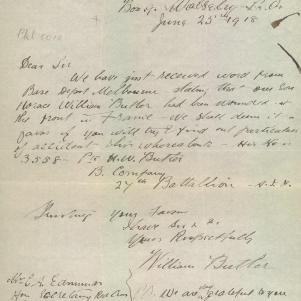 Box 9 Wolseley S.A.
June 25th 1918
Dear Sir
We have just received word from
Base Depot Melbourne stating that our Son
Horace William Butler had been wounded at
the front in France - We shall deem it a
favor if you will try & find out particulars
of accident his whereabouts - His No is
3558 - Pte H. W. Butler
B. Company
27th Battallion - A.I.F.
Trusting your favor
Yours Respectfully
William Butler
Mr E. A. Edmunds
Hon Secretary Red Cross
P.S. We are grateful to you